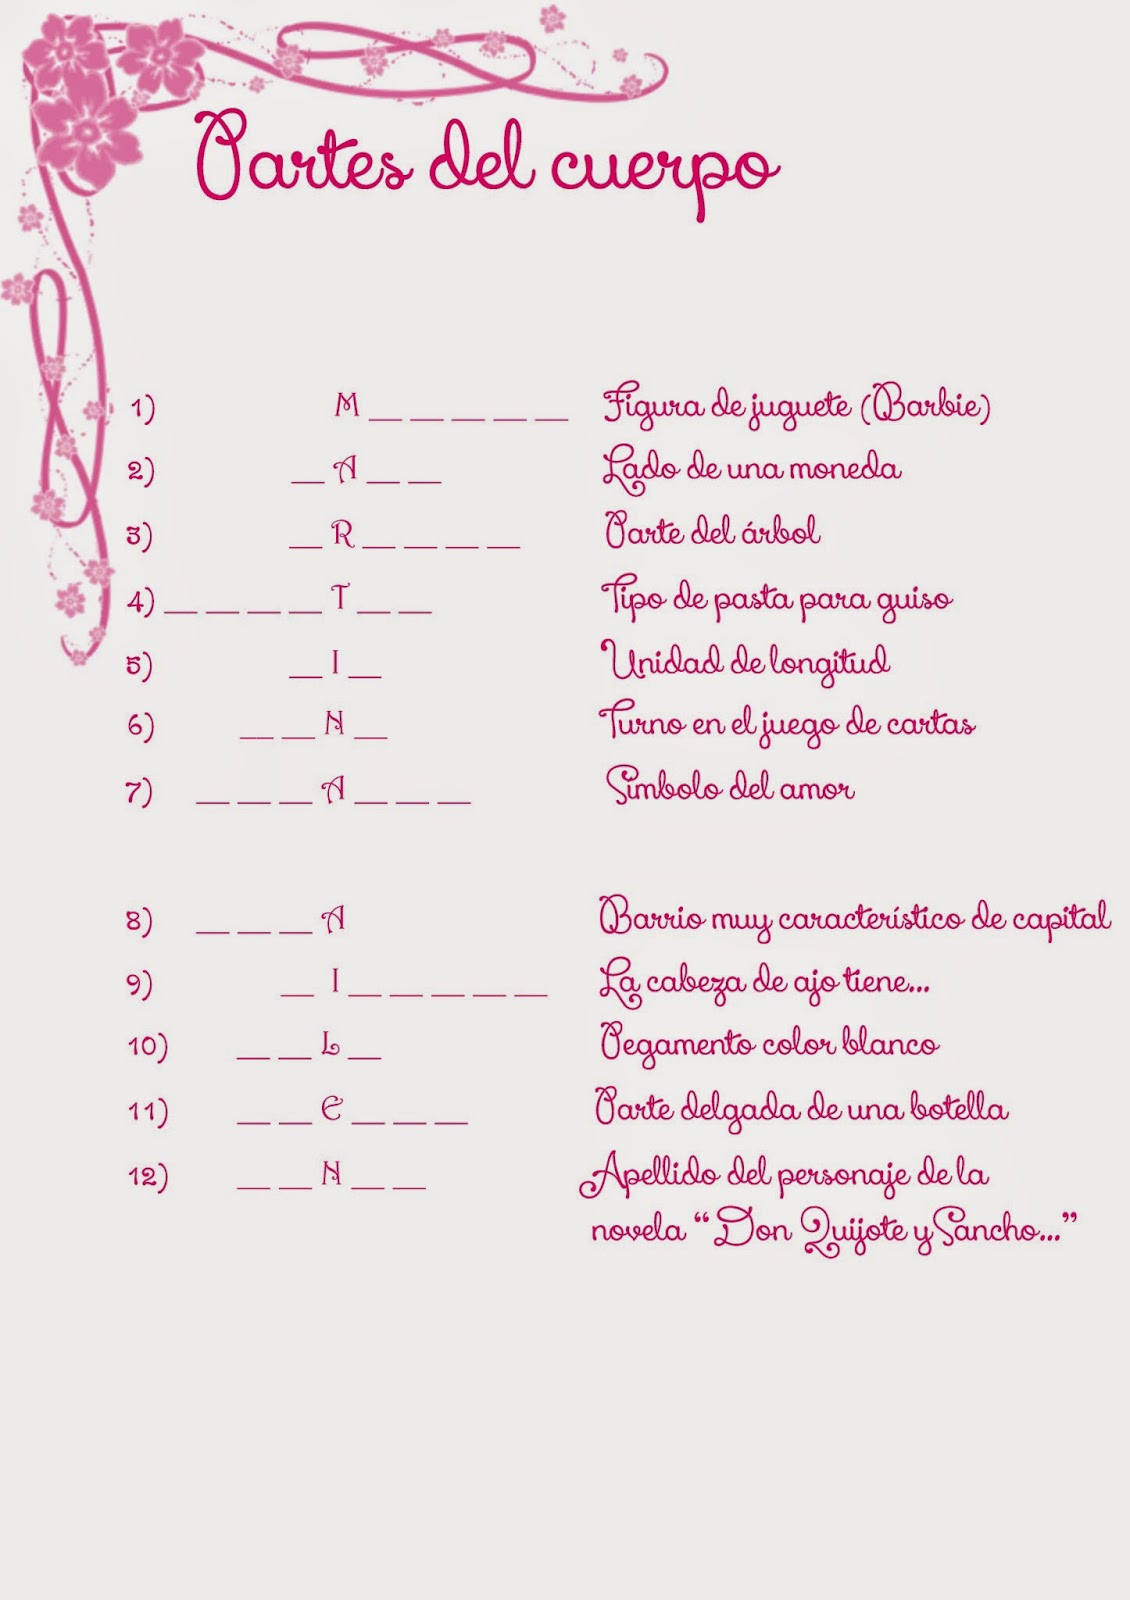 Partes del cuerpo
1) M _ _ _ _ _ Figura de juguete (Barbie)
2) _ A _ _ Lado de una moneda
3) _ R _ _ _ _ Parte del árbol
4) _ _ _ _ T _ _ Tipo de pasta para guiso
5) _ I _ Unidad de longitud
6) _ _ N _ Turno en el juego de cartas
7) _ _ _ A _ _ _ Simbolo del amor
8) _ _ _ A Barrio muy característico de capital
9) _ I _ _ _ _ _ La cabeza de ajo tiene...
10) _ _ L _ Pegamento color blanco
11) _ _ E _ _ _ Parte delgada de una botella
12) _ _ N _ _ Apellido del personaje de la
novela “Don Quijote y Sancho...”